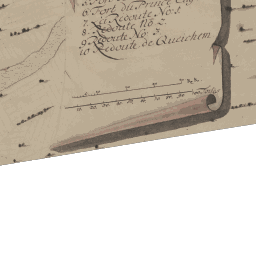 6 Fort du Prince Eug
7 et Redoute No. 1.
8. Redoute No 2.
9. Redoute No. 3
10 Redoute de Queichem
Toises